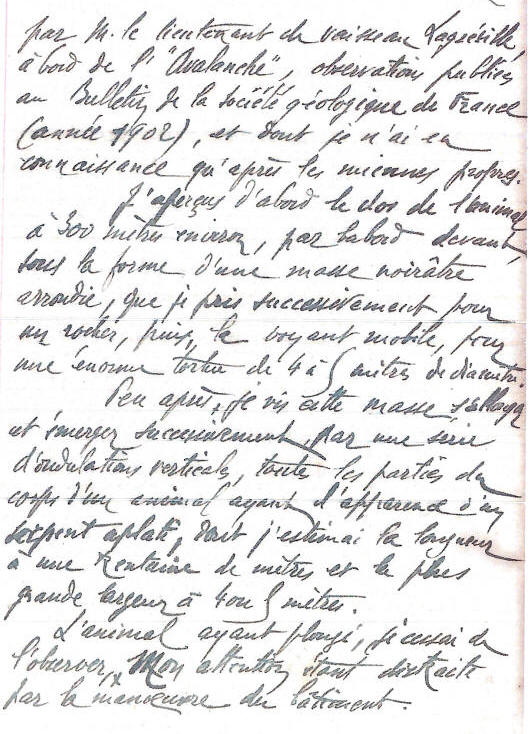 par M. le lieutenant de vaisseau Lagrésille,
à bord de l'"Avalanche", observations publiées
au Bulletin de la société géologique de France
(année 1902), et dont je n'ai eu
connaissance qu'après les miennes propres.
J'aperçus d'abord le dos de l'animal
à 300 mètres environ, par babord devant,
sous la forme d'une masse noirâtre
arrondie, que je pris successivement pour
un rocher, puis, la voyant mobile, pour
une énorme tortue de 4 à 5 mètres de diamètre.
Peu après, je vis cette masse s'allonger
et émerger successivement, par une série
d'ondulations verticales, toutes les parties du
corps d'un animal ayant l'apparence d'un
serpent aplati, dont j'estimai la longueur
à une trentaine de mètres et la plus
grande largeur à 4 ou 5 mètres.
L'animal ayant plongé, je cessai de
l'observer, mon attention étant distraite
par la manœuvre du bâtiment.